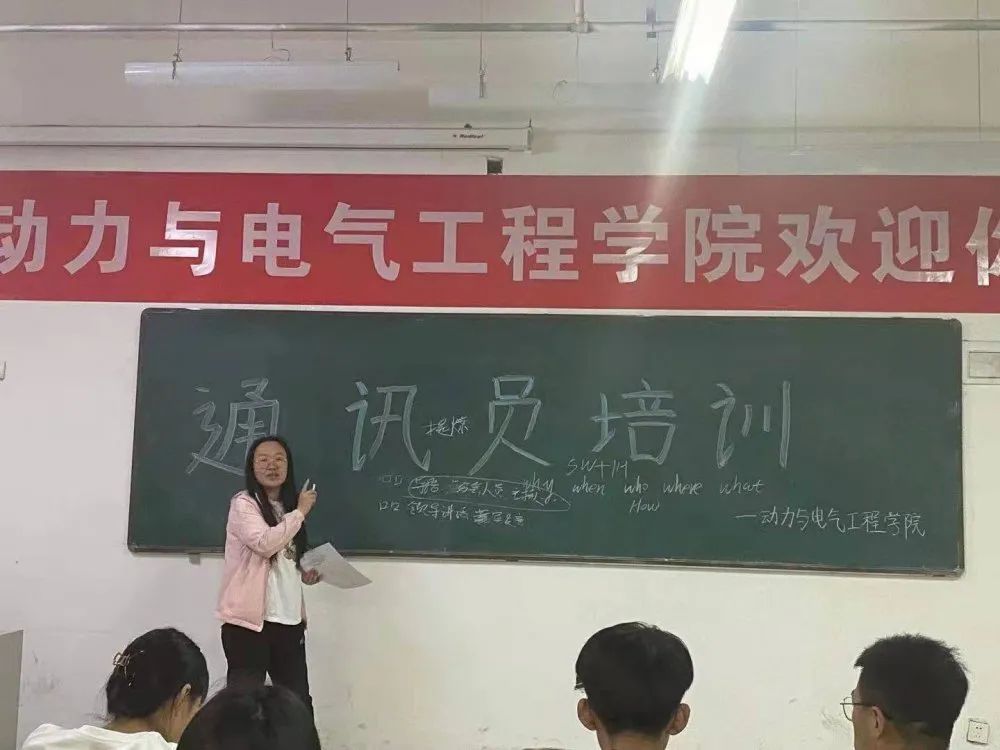 动力与电气工程学院欢迎
通讯员培训
提炼
5W+1H
why when who where what
How
领导讲话
一动力与电气工程学院